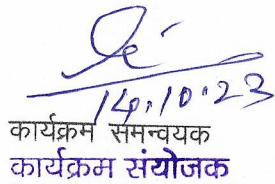 14.10.23
कार्यक्रम समन्वयक
कार्यक्रम संयोजक